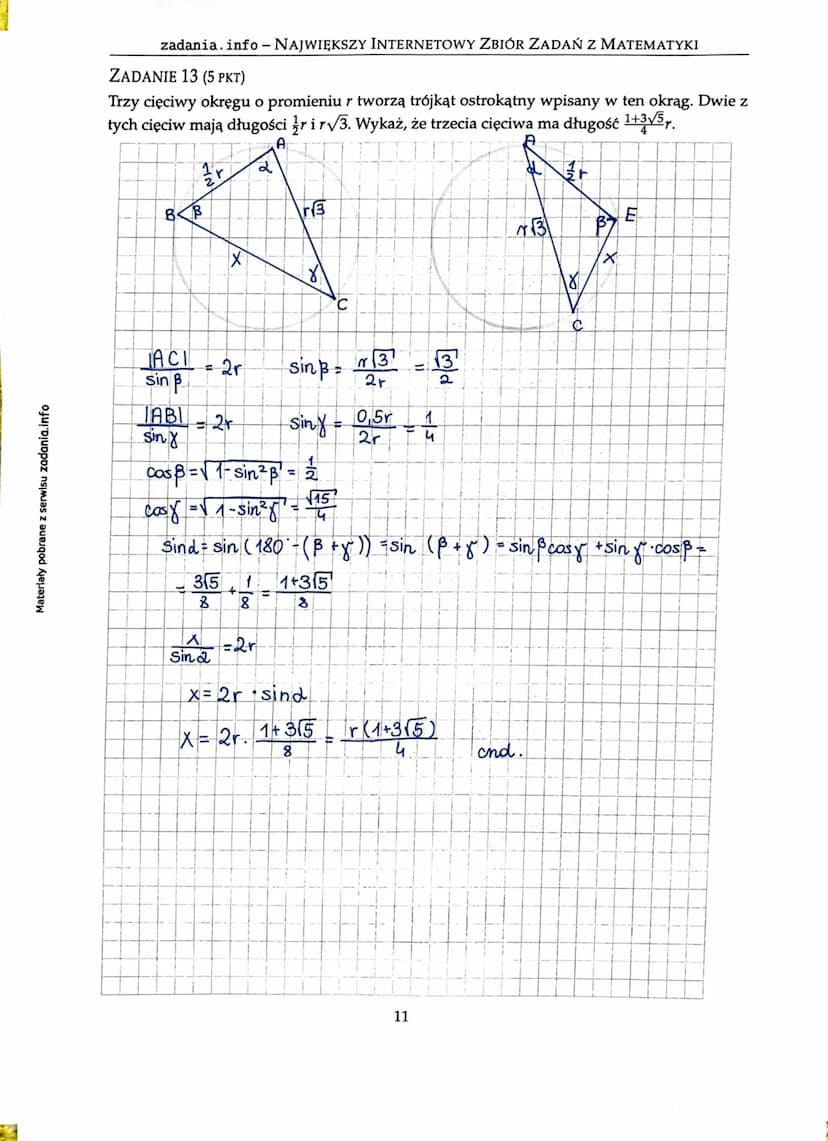 zadania.info – NAJWIĘKSZY INTERNETOWY ZBIÓR ZADAŃ Z MATEMATYKI
ZADANIE 13 (5 PKT)
Trzy cięciwy okręgu o promieniu r tworzą trójkąt ostrokątny wpisany w ten okrąg. Dwie z
tych cięciw mają długości ½r i r√3. Wykaż, że trzecia cięciwa ma długość (1+3√5)/4 r.
A
½r
α
B
β
r√3
x
γ
C
A
α
½r
r√3
β
E
x
γ
C
|AC|/sin β = 2r sin β = r√3/2r = √3/2
|AB|/sin γ = 2r sin γ = 0,5r/2r = 1/4
cos β = √(1-sin²β) = 1/2
cos γ = √(1-sin²γ) = √15/4
sin α = sin (180° - (β + γ)) = sin (β + γ) = sin β cos γ + sin γ · cos β =
= 3√5/8 + 1/8 = 1+3√5/8
x/sin α = 2r
x = 2r · sin α
x = 2r · 1+3√5/8 = r(1+3√5)/4 cnd.
Materiały pobrane z serwisu zadania.info
11